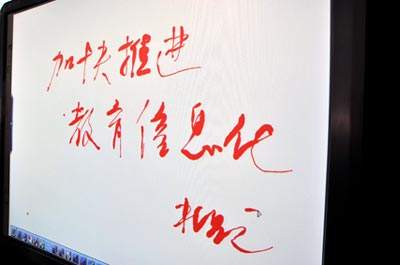 加快推进
教育信息化